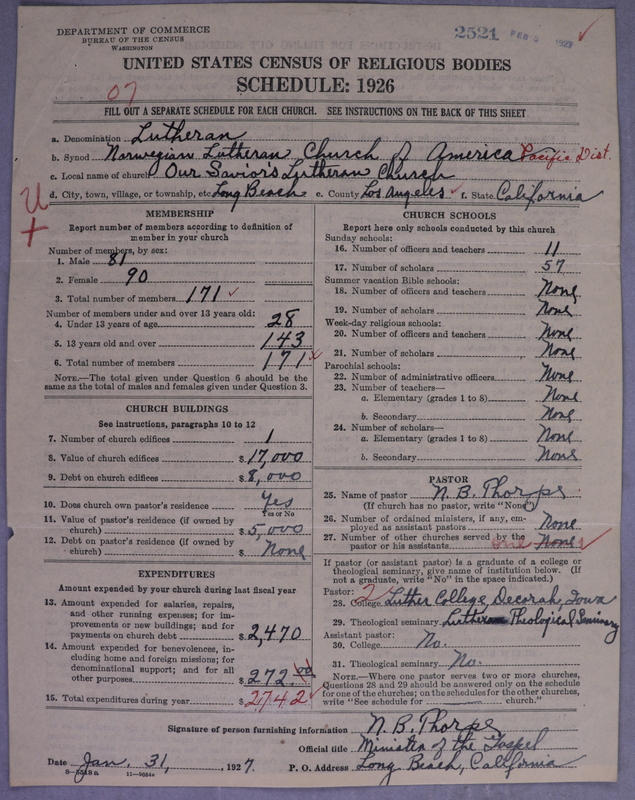 DEPARTMENT OF COMMERCE
BUREAU OF THE CENSUS
WASHINGTON
2521 FEB 1927
UNITED STATES CENSUS OF RELIGIOUS BODIES
SCHEDULE: 1926
07
FILL OUT A SEPARATE SCHEDULE FOR EACH CHURCH. SEE INSTRUCTIONS ON THE BACK OF THIS SHEET
a. Denomination Lutheran
b. Synod Norwegian Lutheran Church of America Pacific Dist.
c. Local name of church Our Savior's Lutheran Church
d. City, town, village, or township, etc. Long Beach e. County Los Angeles f. State California
U
+
MEMBERSHIP
Report number of members according to definition of
member in your church
Number of members, by sex:
1. Male 81
2. Female 90
3. Total number of members 171
Number of members under and over 13 years old:
4. Under 13 years of age 28
5. 13 years old and over 143
6. Total number of members 171
NOTE.—The total given under Question 6 should be the
same as the total of males and females given under Question 3.
CHURCH BUILDINGS
See instructions, paragraphs 10 to 12
7. Number of church edifices 1
8. Value of church edifices $ 17,000
9. Debt on church edifices $ 8,000
10. Does church own pastor's residence Yes
Yes or No
11. Value of pastor's residence (if owned by
church) $ 5,000
12. Debt on pastor's residence (if owned by
church) $ None
EXPENDITURES
Amount expended by your church during last fiscal year
13. Amount expended for salaries, repairs,
and other running expenses; for im-
provements or new buildings; and for
payments on church debt $ 2,470
14. Amount expended for benevolences, in-
cluding home and foreign missions; for
denominational support; and for all
other purposes $ 272.00
15. Total expenditures during year $ 2742
CHURCH SCHOOLS
Report here only schools conducted by this church
Sunday schools:
16. Number of officers and teachers 11
17. Number of scholars 57
Summer vacation Bible schools:
18. Number of officers and teachers None
19. Number of scholars None
Week-day religious schools:
20. Number of officers and teachers None
21. Number of scholars None
Parochial schools:
22. Number of administrative officers None
23. Number of teachers—
a. Elementary (grades 1 to 8) None
b. Secondary None
24. Number of scholars—
a. Elementary (grades 1 to 8) None
b. Secondary None
PASTOR
25. Name of pastor N. B. Thorpe
(If church has no pastor, write "None")
26. Number of ordained ministers, if any, em-
ployed as assistant pastors None
27. Number of other churches served by the
pastor or his assistants one None
If pastor (or assistant pastor) is a graduate of a college or
theological seminary, give name of institution below. (If
not a graduate, write "No" in the space indicated.)
Pastor: 2
28. College Luther College, Decorah, Iowa
29. Theological seminary Lutheran Theological Seminary
Assistant pastor:
30. College No.
31. Theological seminary No.
NOTE.—Where one pastor serves two or more churches,
Questions 28 and 29 should be answered only on the schedule
for one of the churches; on the schedules for the other churches,
write "See schedule for church."
Signature of person furnishing information N. B. Thorpe
Official title Minister of the Gospel
Date Jan. 31, 1927. P. O. Address Long Beach, California